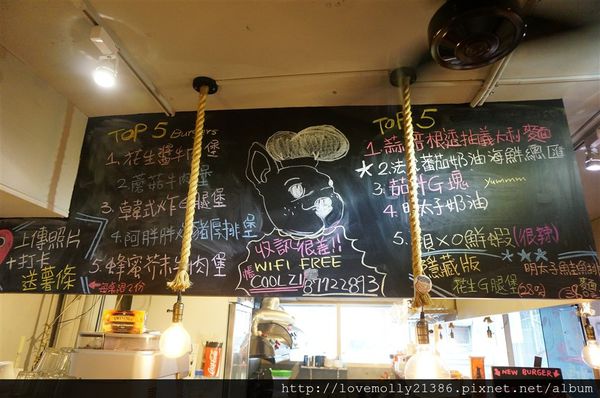 TOP 5 Burgers
1. 花生醬牛肉堡
2. 蘑菇牛肉堡
3. 韓式炸G腿堡
4. 阿胖胖 豬厚排堡
5. 蜂蜜芥末牛肉堡
上傳照片
+打卡
送薯條
收訊很差!!
WIFI FREE
COOLZ! 87722893
TOP 5
1. 蒜 培根 義大利麵
2. 法 蕃茄奶油海鮮總匯
3. 茄汁G塊 Yummm
4. 明太子奶油
5. XO鮮蝦(很辣)
隱藏版
花生G腿堡
明太子
NEW BURGER
Coca-Cola
http://lovemolly21386.pixnet.net/album